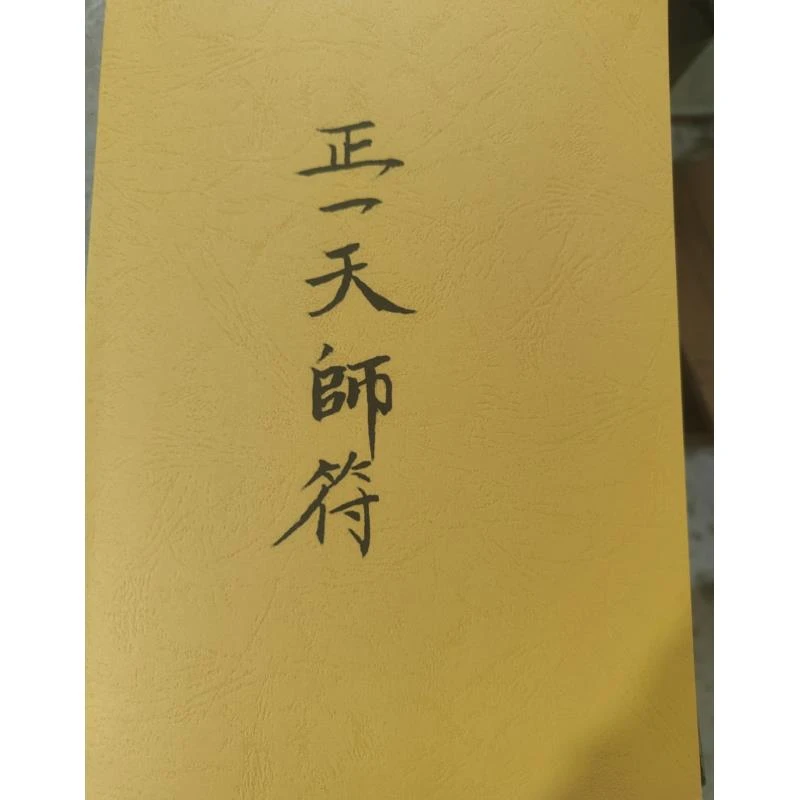 正一天師符